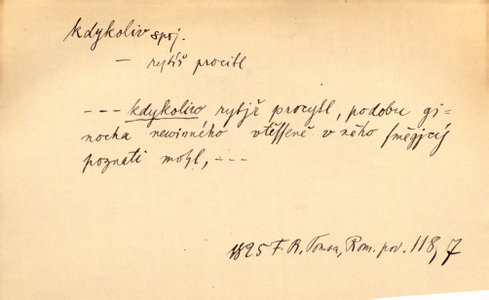 kdykoliv spoj.
— rytíř procitl
--- kdykoliw rytjř procytl, podobu gi-
nocha newinného vtěsseně v něho směgjcý
poznati mohl, ---
1825 F. R. Tonsa, Rom. pov. 118, 7